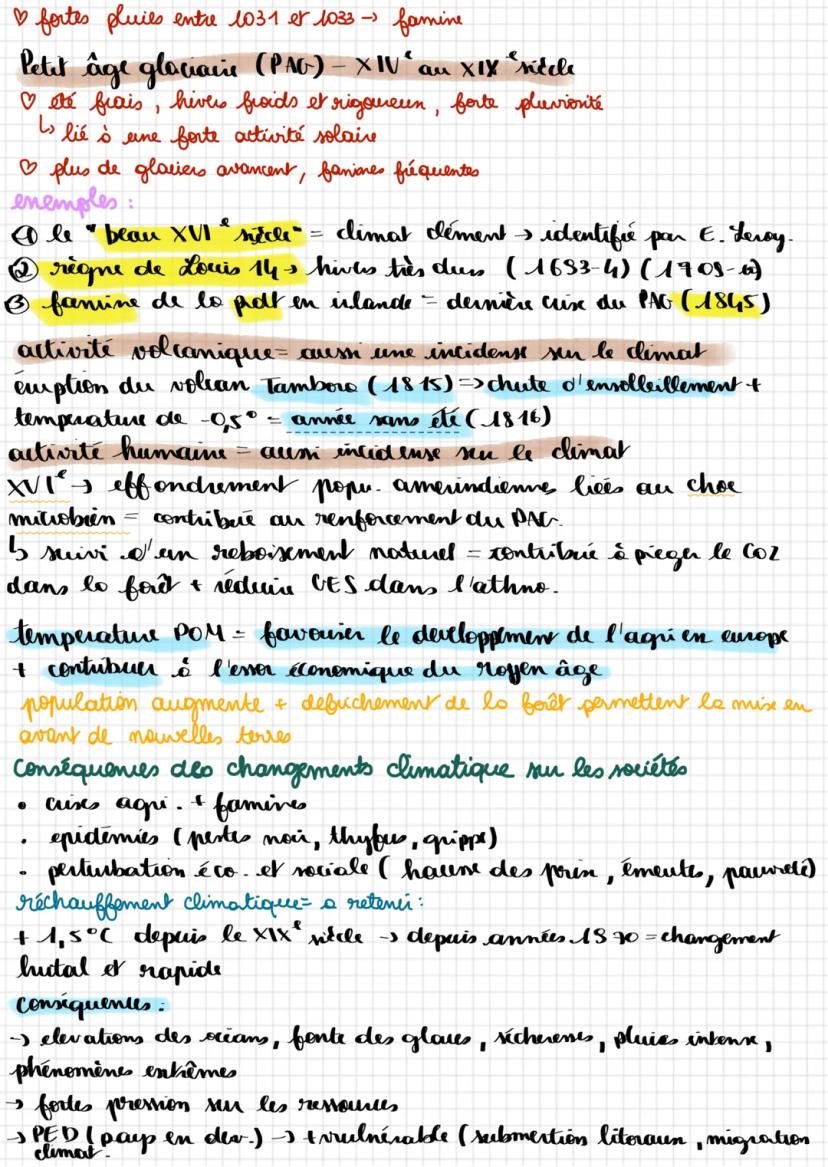 ♡ fortes pluies entre 1031 et 1033 → famine
Petit âge glaciaire (PAG) – XIVe au XIXe siècle
♡ été frais, hivers froids et rigoureux, forte pluviorité
↳ lié à une forte activité solaire
♡ plus de glaciers avancent, famines fréquentes
exemples :
① le "beau XVIe siècle" = climat clément → identifié par E. Leroy.
② règne de Louis 14 → hivers très durs (1693-4) (1709-10)
③ famine de la pdt en irlande = dernière crise du PAG (1845)
activité volcanique = aussi une incidense sur le climat
éruption du volcan Tambora (1815) => chute d'ensolleillement +
temperature de -0,5° = année sans été (1816)
activité humaine = aussi incidense sur le climat
XVIe → effondrement popu. amerindiennes liées au choc
microbien = contribué au renforcement du PAG.
↳ suivi d'un reboisement naturel = contribué à pieger le CO2
dans la forêt + réduire GES dans l'athmo.
temperature POM = favoriser le developpement de l'agri en europe
+ contribuer à l'essor économique du moyen âge
population augmente + defrichement de la forêt permettent la mise en
avant de nouvelles terres
Conséquences des changements climatique sur les sociétés
• crises agri. + famines
• epidémies (pestes noir, thyfus, grippe)
• perturbation éco. et sociale (hausse des prix, émeutes, pauvreté)
réchauffement climatique = a retenir :
+ 1,5°C depuis le XIXe siècle → depuis années 1970 = changement
brutal et rapide
conséquences :
→ elevations des océans, fonte des glaces, sécheresses, pluies intense,
phénomènes extrêmes
→ fortes pression sur les ressources
→ PED (pays en dev.) → + vulnérable (submertion litoraux, migration
climat.